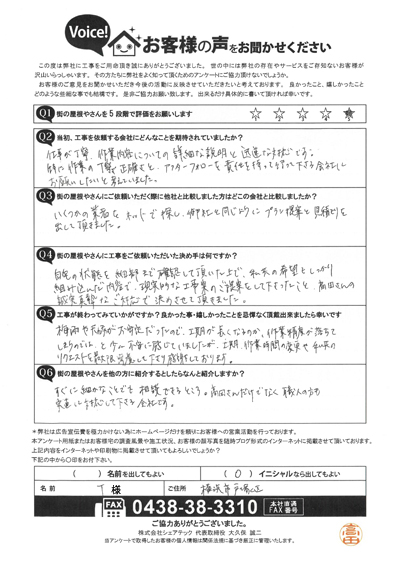 Voice!
お客様の声をお聞かせください
この度は弊社に工事をご用命頂き誠にありがとうございました。世の中には弊社の存在やサービスをご存知ないお客様が
沢山いらっしゃいます。その方たちに弊社をよく知って頂くためのアンケートにご協力頂けないでしょうか。
お客様のご意見をお聞かせいただき今後の活動に反映させていただきたいと考えております。良かったこと、嬉しかったこと
どのような些細な事でも結構です。是非ご協力お願い致します。出来るだけ具体的に書いて頂ければ幸いです。
Q1 街の屋根やさんを5段階で評価をお願いします ☆ ☆ ☆ ☆ ★
Q2 当初、工事を依頼する会社にどんなことを期待されていましたか?
仕事が丁寧、作業内容についての詳細な説明と迅速な対応どう。
特に作業の丁寧と正確さと、アフターフォローを責任を持って行って下さる会社に
お願いしたいと考えていました。
Q3 街の屋根やさんにご依頼いただく際に他社と比較しました方はどこの会社と比較しましたか?
いくつかの業者をネットで探し、御社と同じようにプラン提案と見積りを
出して頂きました。
Q4 街の屋根やさんに工事をご依頼いただいた決め手は何ですか?
自宅の状態を細部まで確認して頂いた上で、私共の希望としっかり
組み込んだ内容で、現実的な工事案のご提案をして下さったこと、高田さんの
誠実真摯なご対応で決めさせて頂きました。
Q5 工事が終わってみていかがですか?良かった事・嬉しかったことを忌憚なく頂戴出来ましたら幸いです
梅雨や天候が不安定だったので、工期が長くなるのか、作業精度が落ちて
しまうのでは、と少し不安に感じていましたが、工期、作業時間の変更や私共の
リクエストを最大限考慮して下さり感謝しております。
Q6 街の屋根やさんを他の方に紹介するとしたらなんと紹介しますか?
すぐに細かなことでも相談できるところ。高田さんだけでなく職人の方も
実直に対応して下さる会社です。
*弊社は広告宣伝費を極力かけない為にホームページだけを頼りにお客様への営業活動を行っております。
本アンケート用紙またはお客様宅の調査風景や施工状況、お客様の顔写真を随時ブログ形式のインターネットに掲載させて頂いております。
上記内容をインターネットや印刷物に掲載させて頂いてもよろしいでしょうか?
下記の中から〇印をお付下さい。
( )名前を出してもよい ( O )イニシャルなら出してもよい
名前 T 様 ご住所 横浜市戸塚区
FAX 0438-38-3310 本社直通 FAX番号
ご協力ありがとうございました。
株式会社シェアテック 代表取締役 大久保 誠二
当アンケートで取得したお客様の個人情報は関係法規に基づき厳正に管理いたします。
高田